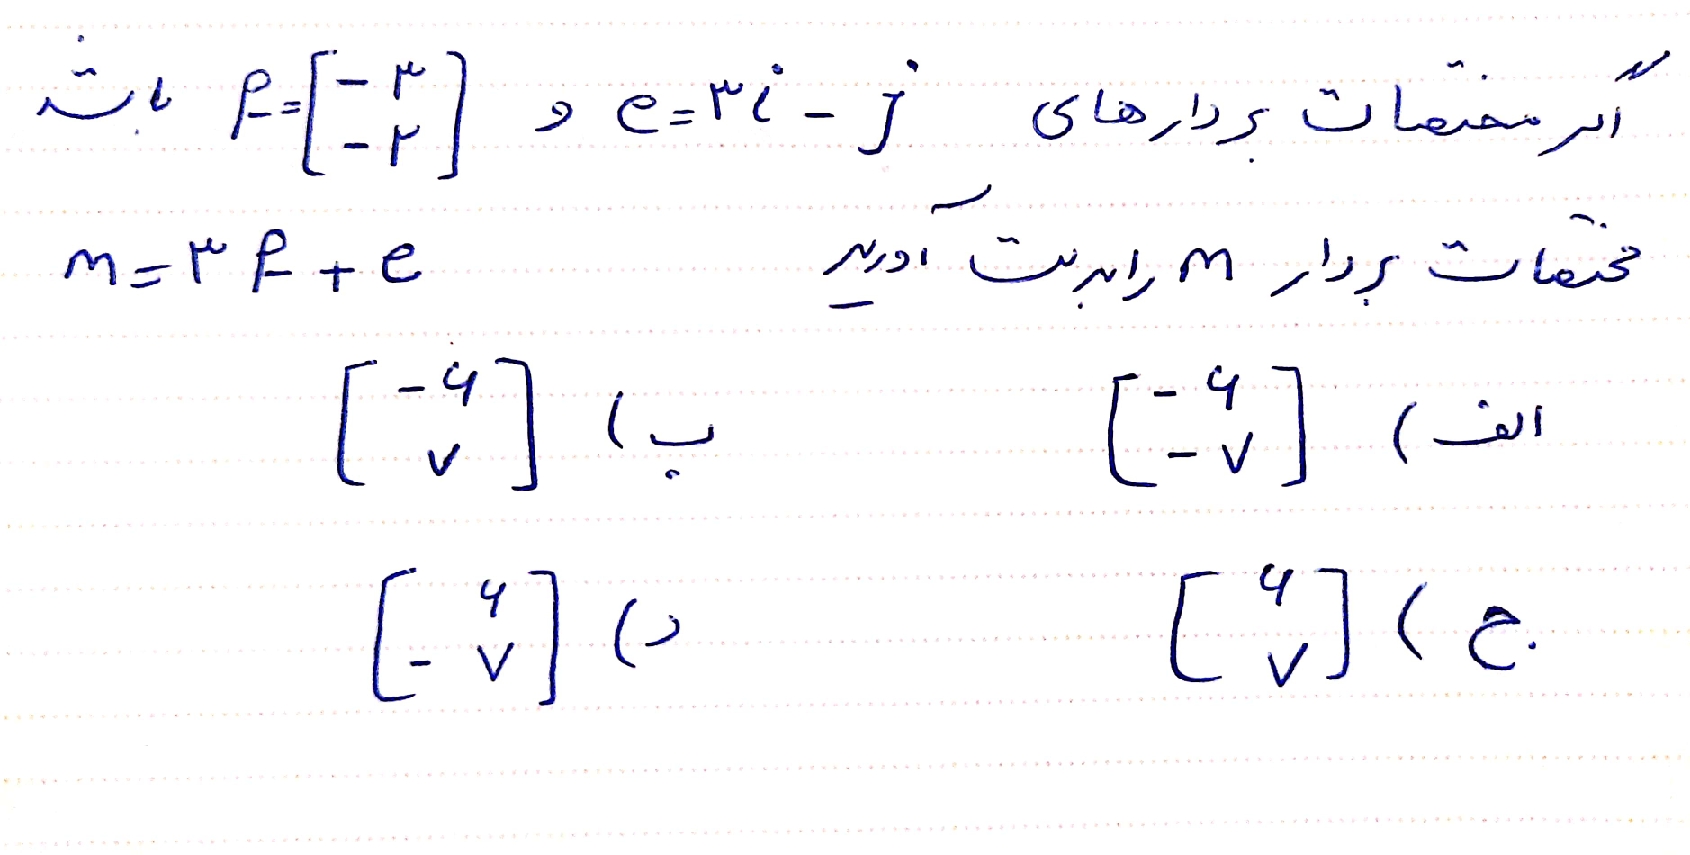 اگر مختصات بردارهای e=۳i-j و f=[-۳ -۲] باشد
مختصات بردار m را بدست آورید m=۳f+e
الف) [-۶ -۷] ب) [-۶ ۷]
ج) [۶ ۷] د) [۶ -۷]